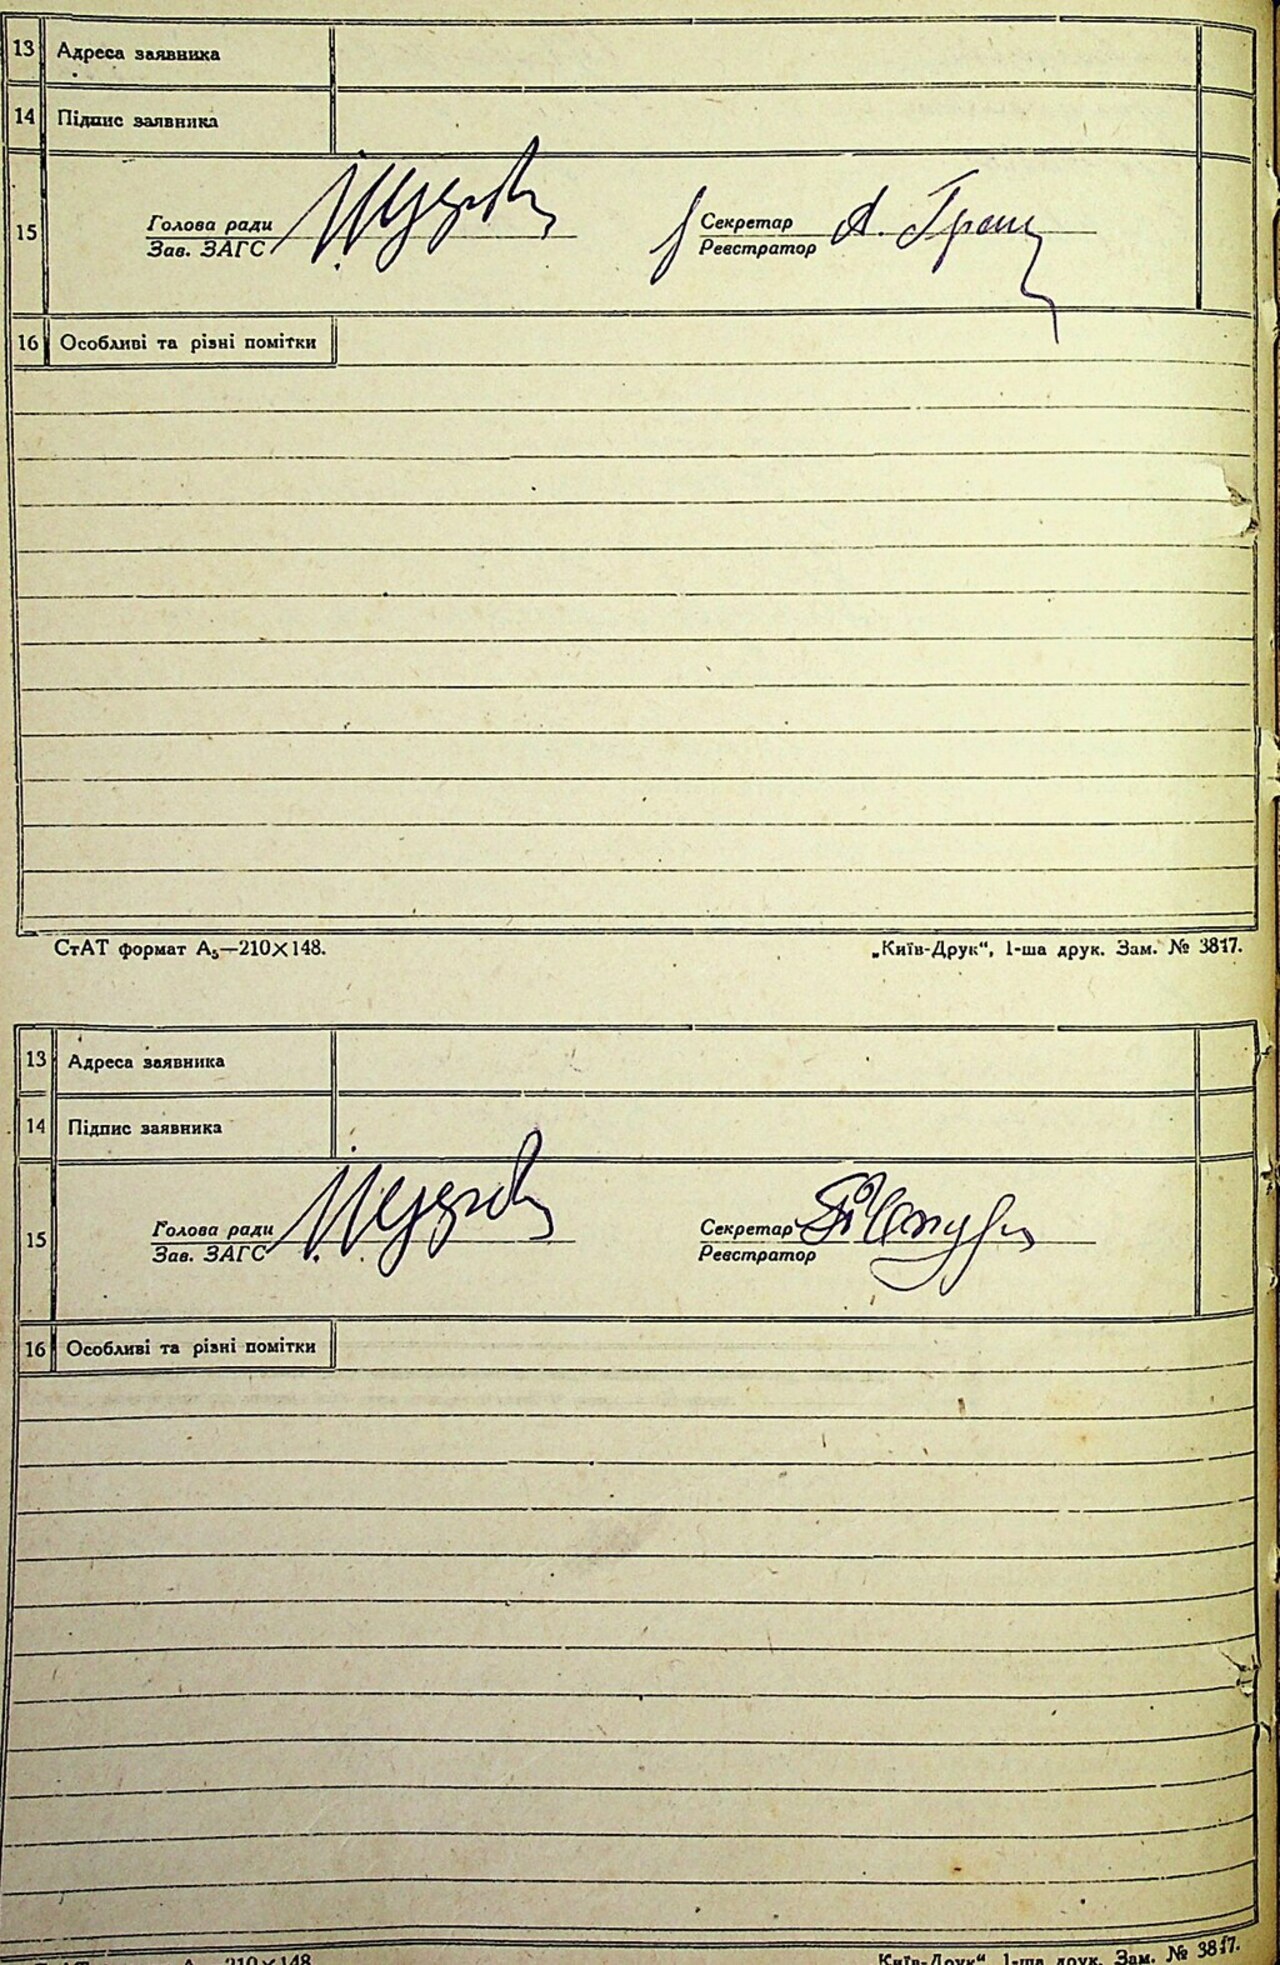 13 Адреса заявника
14 Підпис заявника
15 Голова ради Секретар А.
Зав. ЗАГС Реєстратор
16 Особливі та різні помітки
СтАТ формат А₅—210×148. „Київ-Друк“, 1-ша друк. Зам. № 3817.
13 Адреса заявника
14 Підпис заявника
15 Голова ради Секретар
Зав. ЗАГС Реєстратор
16 Особливі та різні помітки
210×148 Київ-Друк“ 1-ша друк. Зам. № 3817.